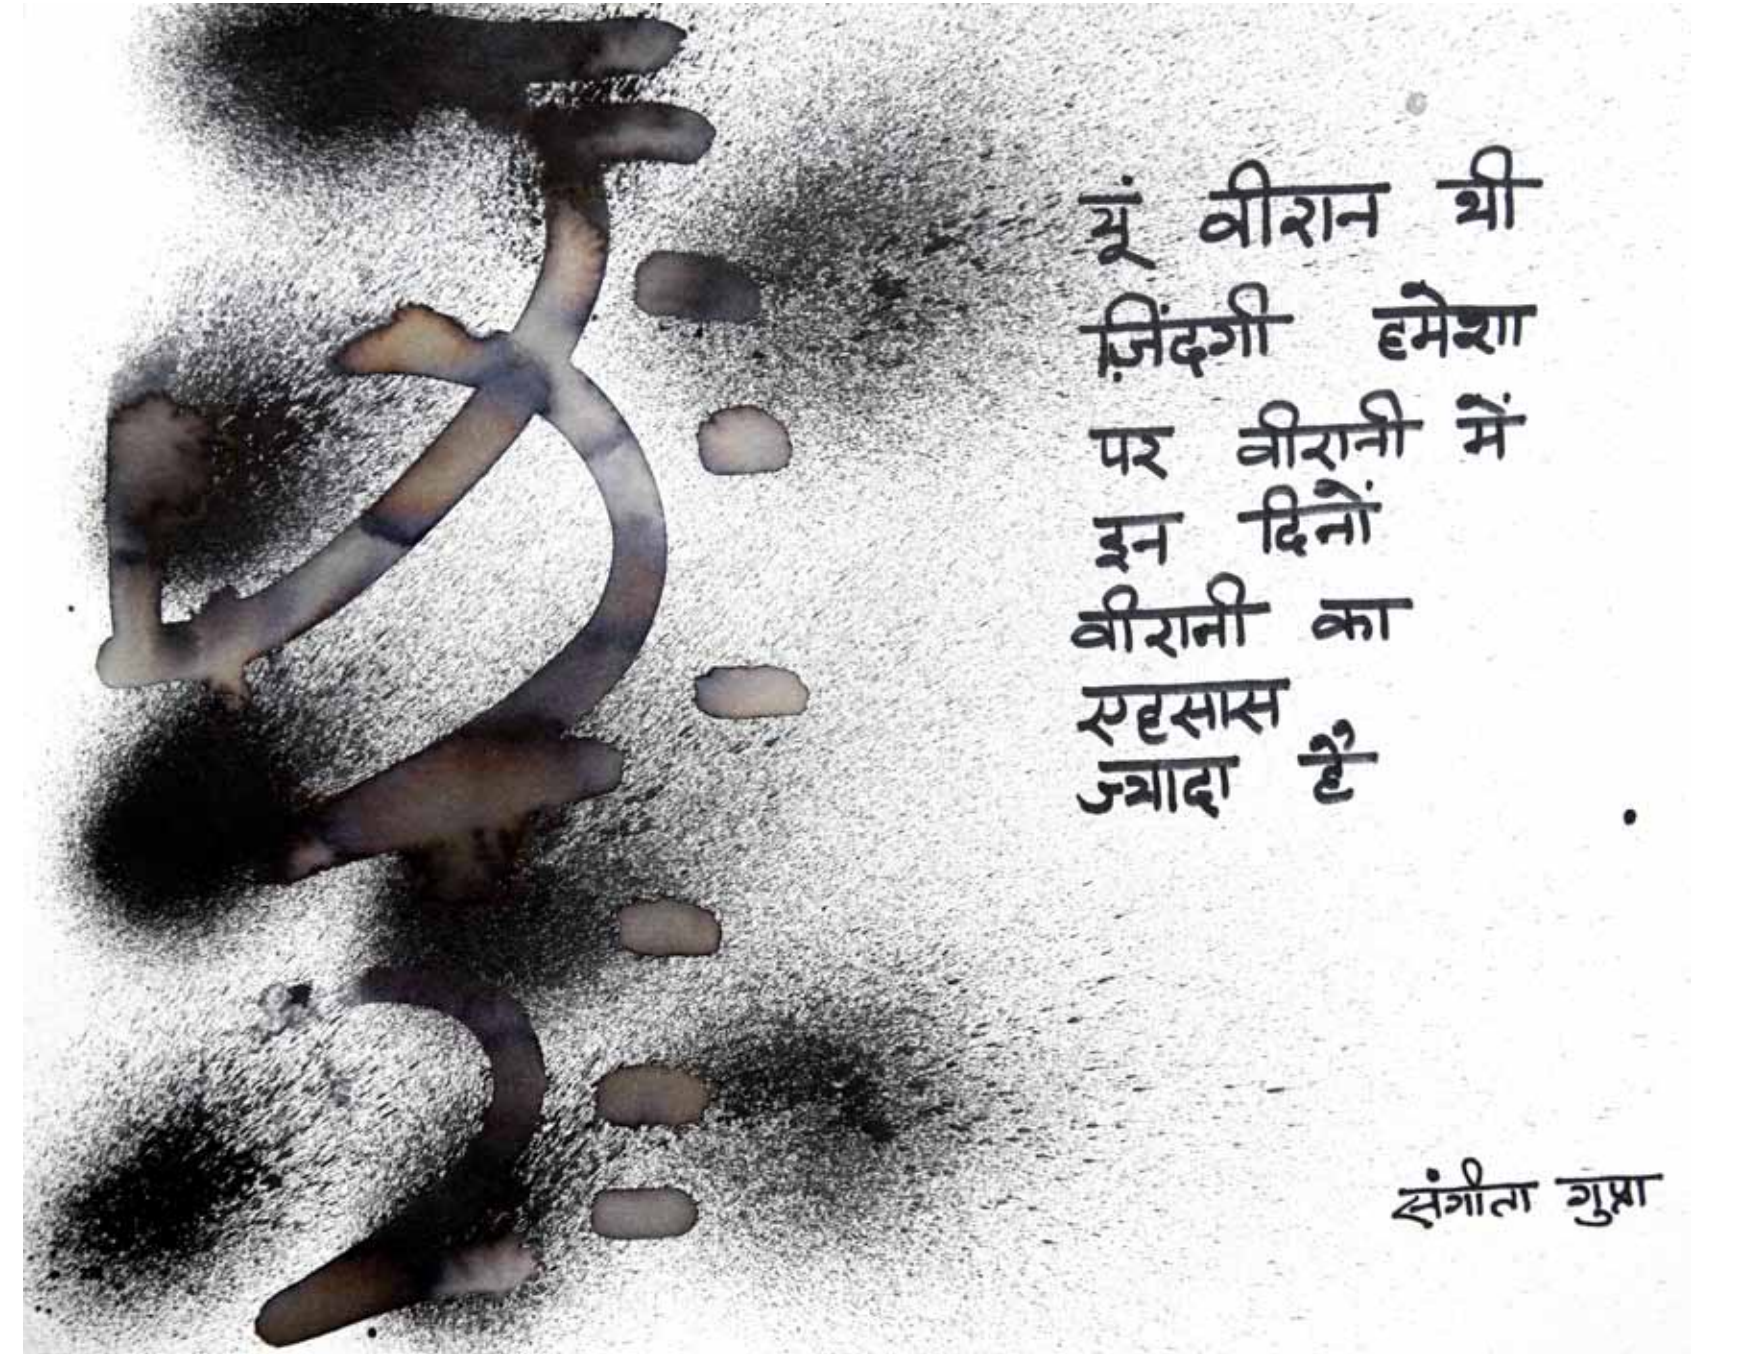 यूं वीरान थी
ज़िंदगी हमेशा
पर वीरानी में
इन दिनों
वीरानी का
एहसास
ज्यादा है
संगीता गुप्ता